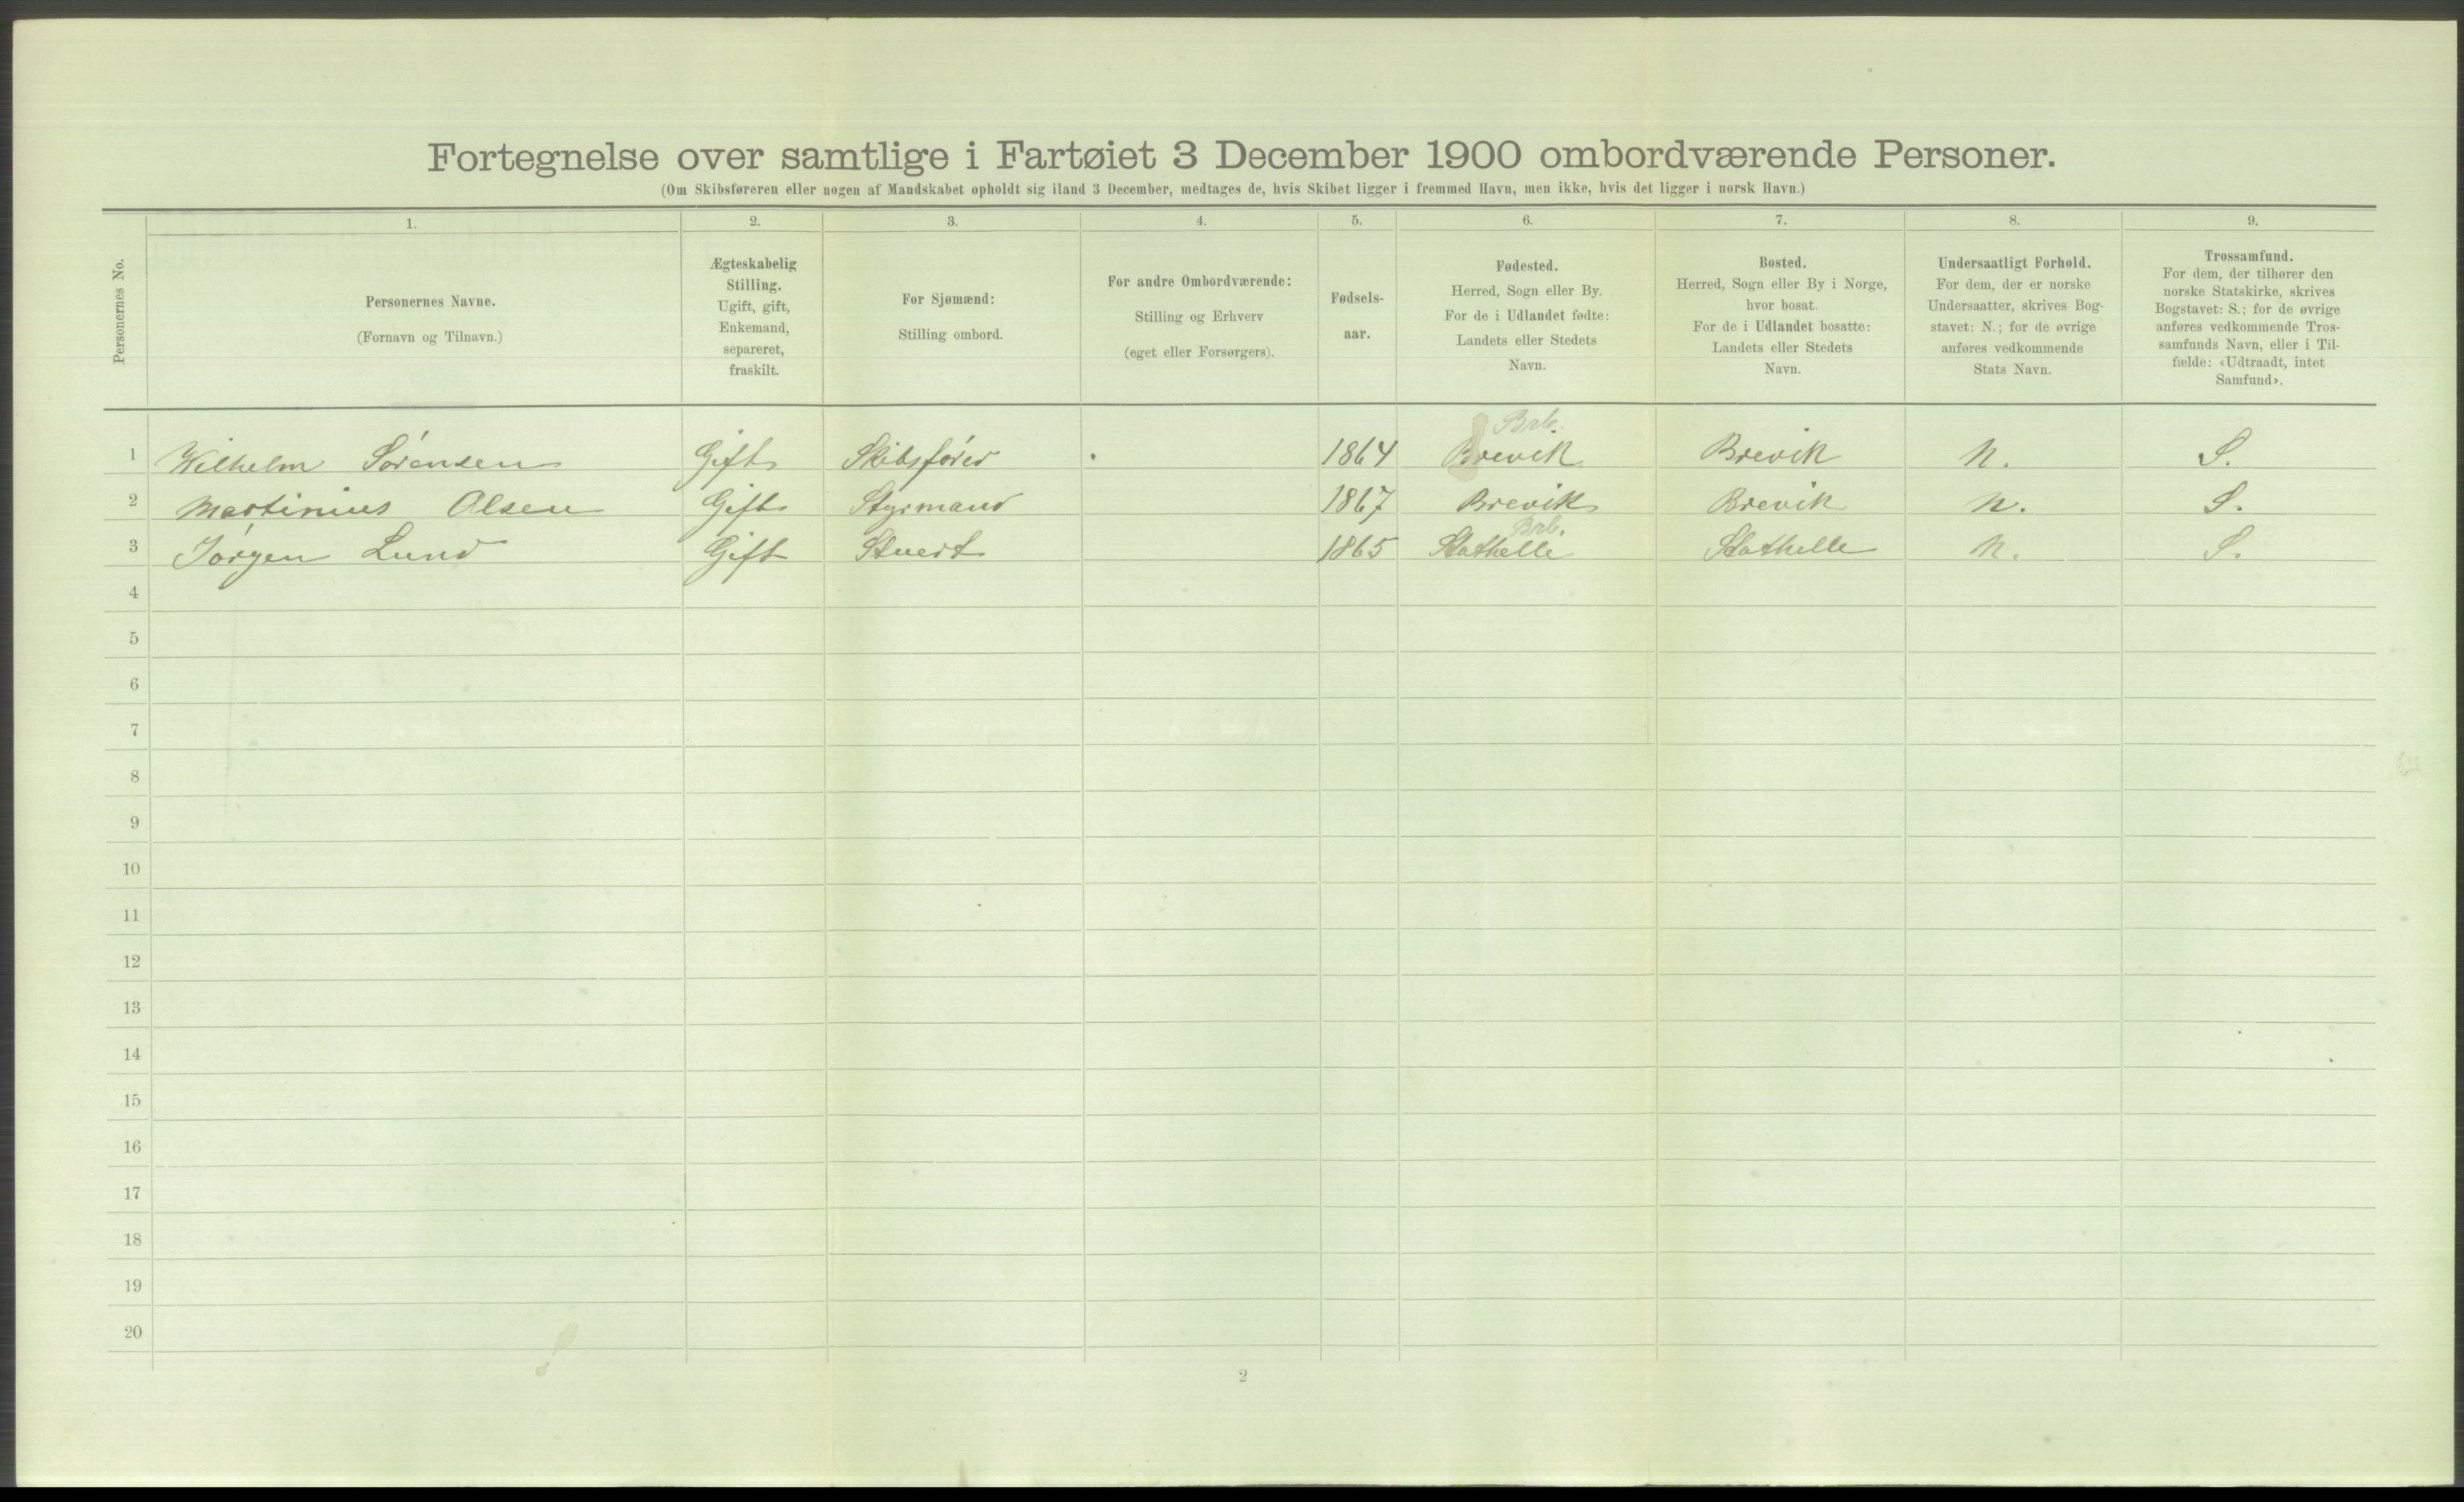 Fortegnelse over samtlige i Fartøiet 3 December 1900 ombordværende Personer.
(Om Skibsføreren eller nogen af Mandskabet opholdt sig iland 3 December, medtages de, hvis Skibet ligger i fremmed Havn, men ikke, hvis det ligger i norsk Havn.)
Personernes No.
1.
Personernes Navne.
(Fornavn og Tilnavn.)
2.
Ægteskabelig
Stilling.
Ugift, gift,
Enkemand,
separeret,
fraskilt.
3.
For Sjømænd:
Stilling ombord.
4.
For andre Ombordværende:
Stilling og Erhverv
(eget eller Forsørgers).
5.
Fødsels-
aar.
6.
Fødested.
Herred, Sogn eller By.
For de i Udlandet fødte:
Landets eller Stedets
Navn.
7.
Bosted.
Herred, Sogn eller By i Norge,
hvor bosat.
For de i Udlandet bosatte:
Landets eller Stedets
Navn.
8.
Undersaatligt Forhold.
For dem, der er norske
Undersaatter, skrives Bog-
stavet: N.; for de øvrige
anføres vedkommende
Stats Navn.
9.
Trossamfund.
For dem, der tilhører den
norske Statskirke, skrives
Bogstavet: S.; for de øvrige
anføres vedkommende Tros-
samfunds Navn, eller i Til-
fælde: «Udtraadt, intet
Samfund».
Brb.
1 Wilhelm Sørensen Gift Skibsfører 1864 Brevik Brevik N. S.
2 Martinius Olsen Gift Styrmand 1867 Brevik Brevik N. S.
Brb.
3 Jørgen Lund Gift Stuert 1865 Stathelle Stathelle N. S.
4
5
6
7
8
9
10
11
12
13
14
15
16
17
18
19
20
2